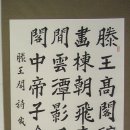 滕王高閣臨
畫棟朝飛
閒雲潭影
閣中帝子今
滕王閣詩